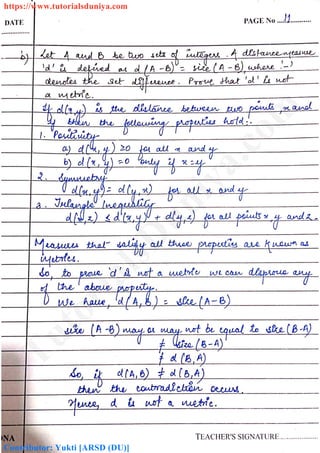 https://www.tutorialsduniya.com
DATE
PAGE No 11
b) Let A and B be two sets of integers. A distance measure
'd' is defined as d(A-B) = size(A-B), where '-'
denotes the set difference. Prove that 'd' is not
a metric.
If d(x,y) is the distance between two points, x and
y then the following properties hold:-
1. Positivity
a) d(x,y) ≥0 for all x and y
b) d(x,y)=0 only if x=y
2. Symmetry
d(x,y)= d(y,x) for all x and y
3. Triangle Inequality
d(x,z) ≤ d(x,y) + d(y,z) for all points x y and z.
Measures that satisfy all three properties are known as
metrics.
So, to prove 'd' is not a metric we can disprove any
of the above property.
We have, d(A,B) = size (A-B)
size (A-B) may or may not be equal to size (B-A)
≠ size (B-A)
≠ d(B,A)
So, if d(A,B) ≠ d(B,A)
then the contradiction occurs.
Hence, d is not a metric.
DNA
TEACHER'S SIGNATURE
Contributor: Yukti [ARSD (DU)]